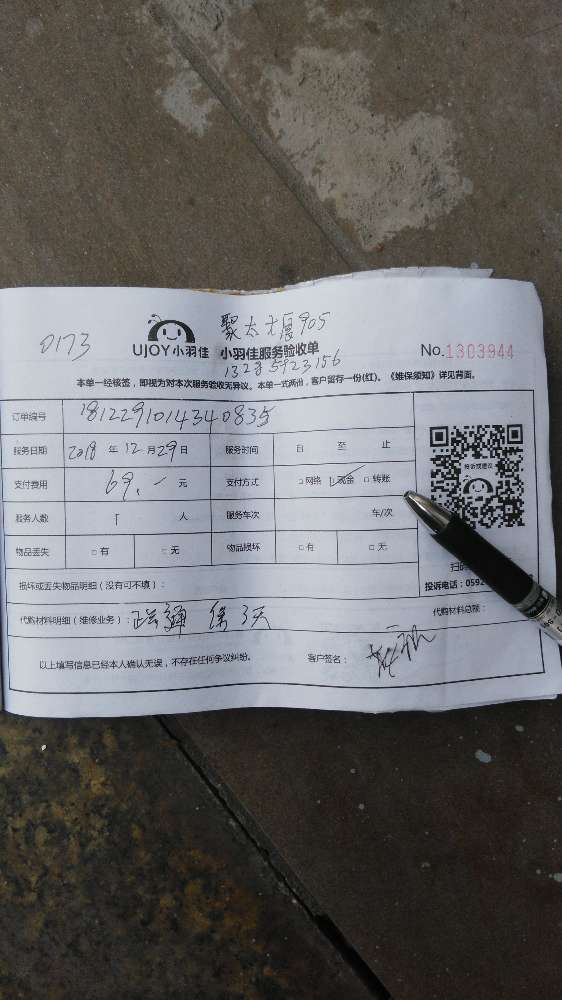 0173
聚太大厦905
UJOY小羽佳 小羽佳服务验收单 No.1303944
13235923156
本单一经核签，即视为对本次服务验收无异议。本单一式两份，客户留存一份(红)。《维保须知》详见背面。
订单编号 1812291014340835
服务日期 2018年12月29日 服务时间 自 至 止
支付费用 69.- 元 支付方式 □网络 □现金 □转账
服务人数 1 人 服务车次 车/次
物品丢失 □有 □无 物品损坏 □有 □无
投诉或建议
扫码
投诉电话：0592
损坏或丢失物品明细（没有可不填）：
代购材料明细（维修业务）： 疏通 保3天 代购材料总额：
以上填写信息已经本人确认无误，不存在任何争议纠纷。 客户签名：